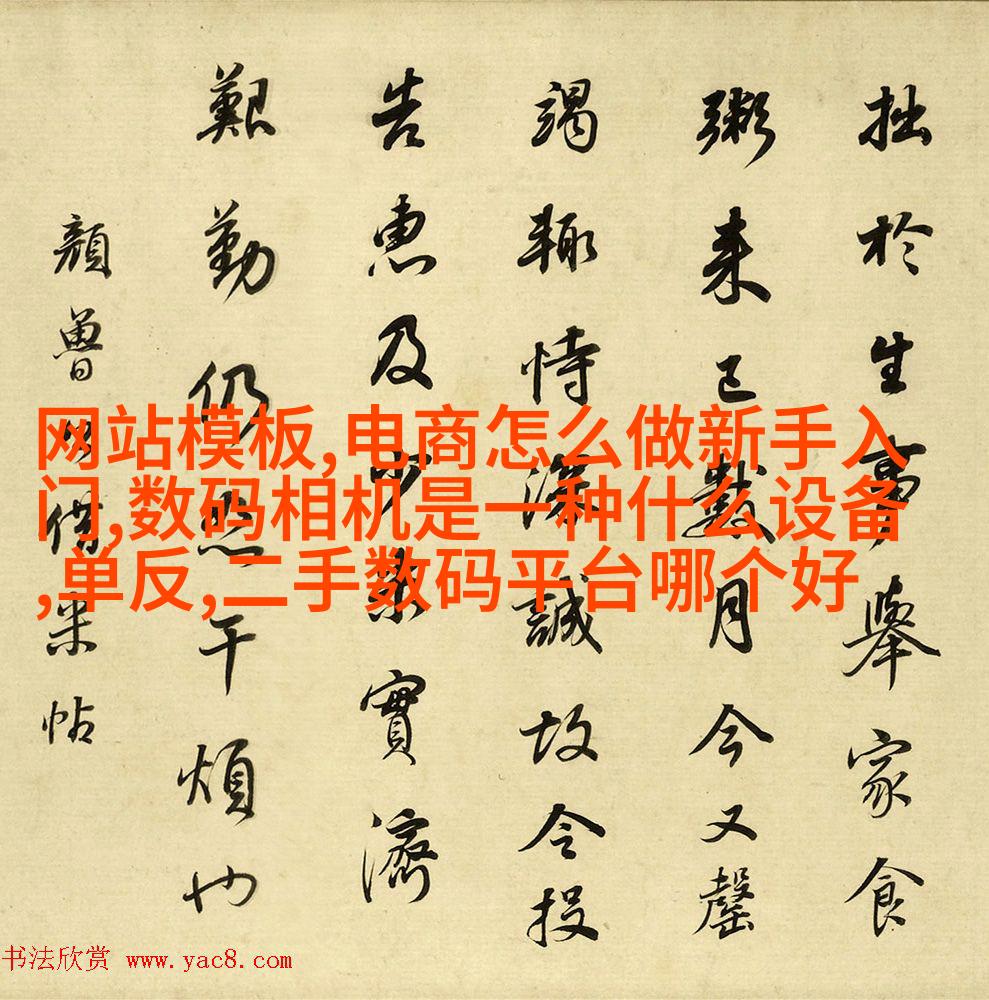 拙於生事舉家食
粥来已數月今又罄
竭輙恃深誠故令投
告惠及少米實濟
艱勤仍恕干煩也
顔魯公借米帖
网站模板,电商怎么做新手入
门,数码相机是一种什么设备
,单反,二手数码平台哪个好
书法欣赏 www.yac8.com